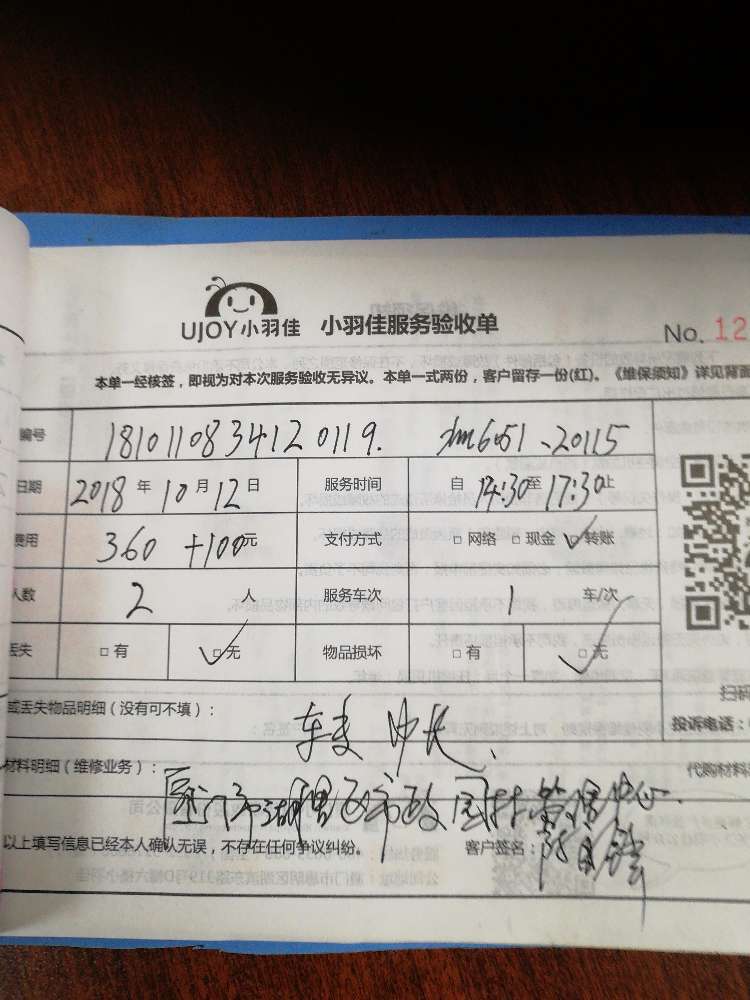 UJOY小羽佳 小羽佳服务验收单
No. 12
本单一经核签，即视为对本次服务验收无异议。本单一式两份，客户留存一份(红)。《维保须知》详见背面
编号 181011083412 0119. xm6051-20115
日期 2018 年 10 月 12 日 服务时间 自 14:30 至 17:30 止
费用 360 +100元 支付方式 □ 网络 □ 现金 □ 转账
人数 2 人 服务车次 1 车/次
丢失 □ 有 □ 无 物品损坏 □ 有 □ 无
扫码
或丢失物品明细（没有可不填）：
投诉电话：
材料明细（维修业务）：
代购材料
厦门市湖里区市政园林管理中心
以上填写信息已经本人确认无误，不存在任何争议纠纷。 客户签名：